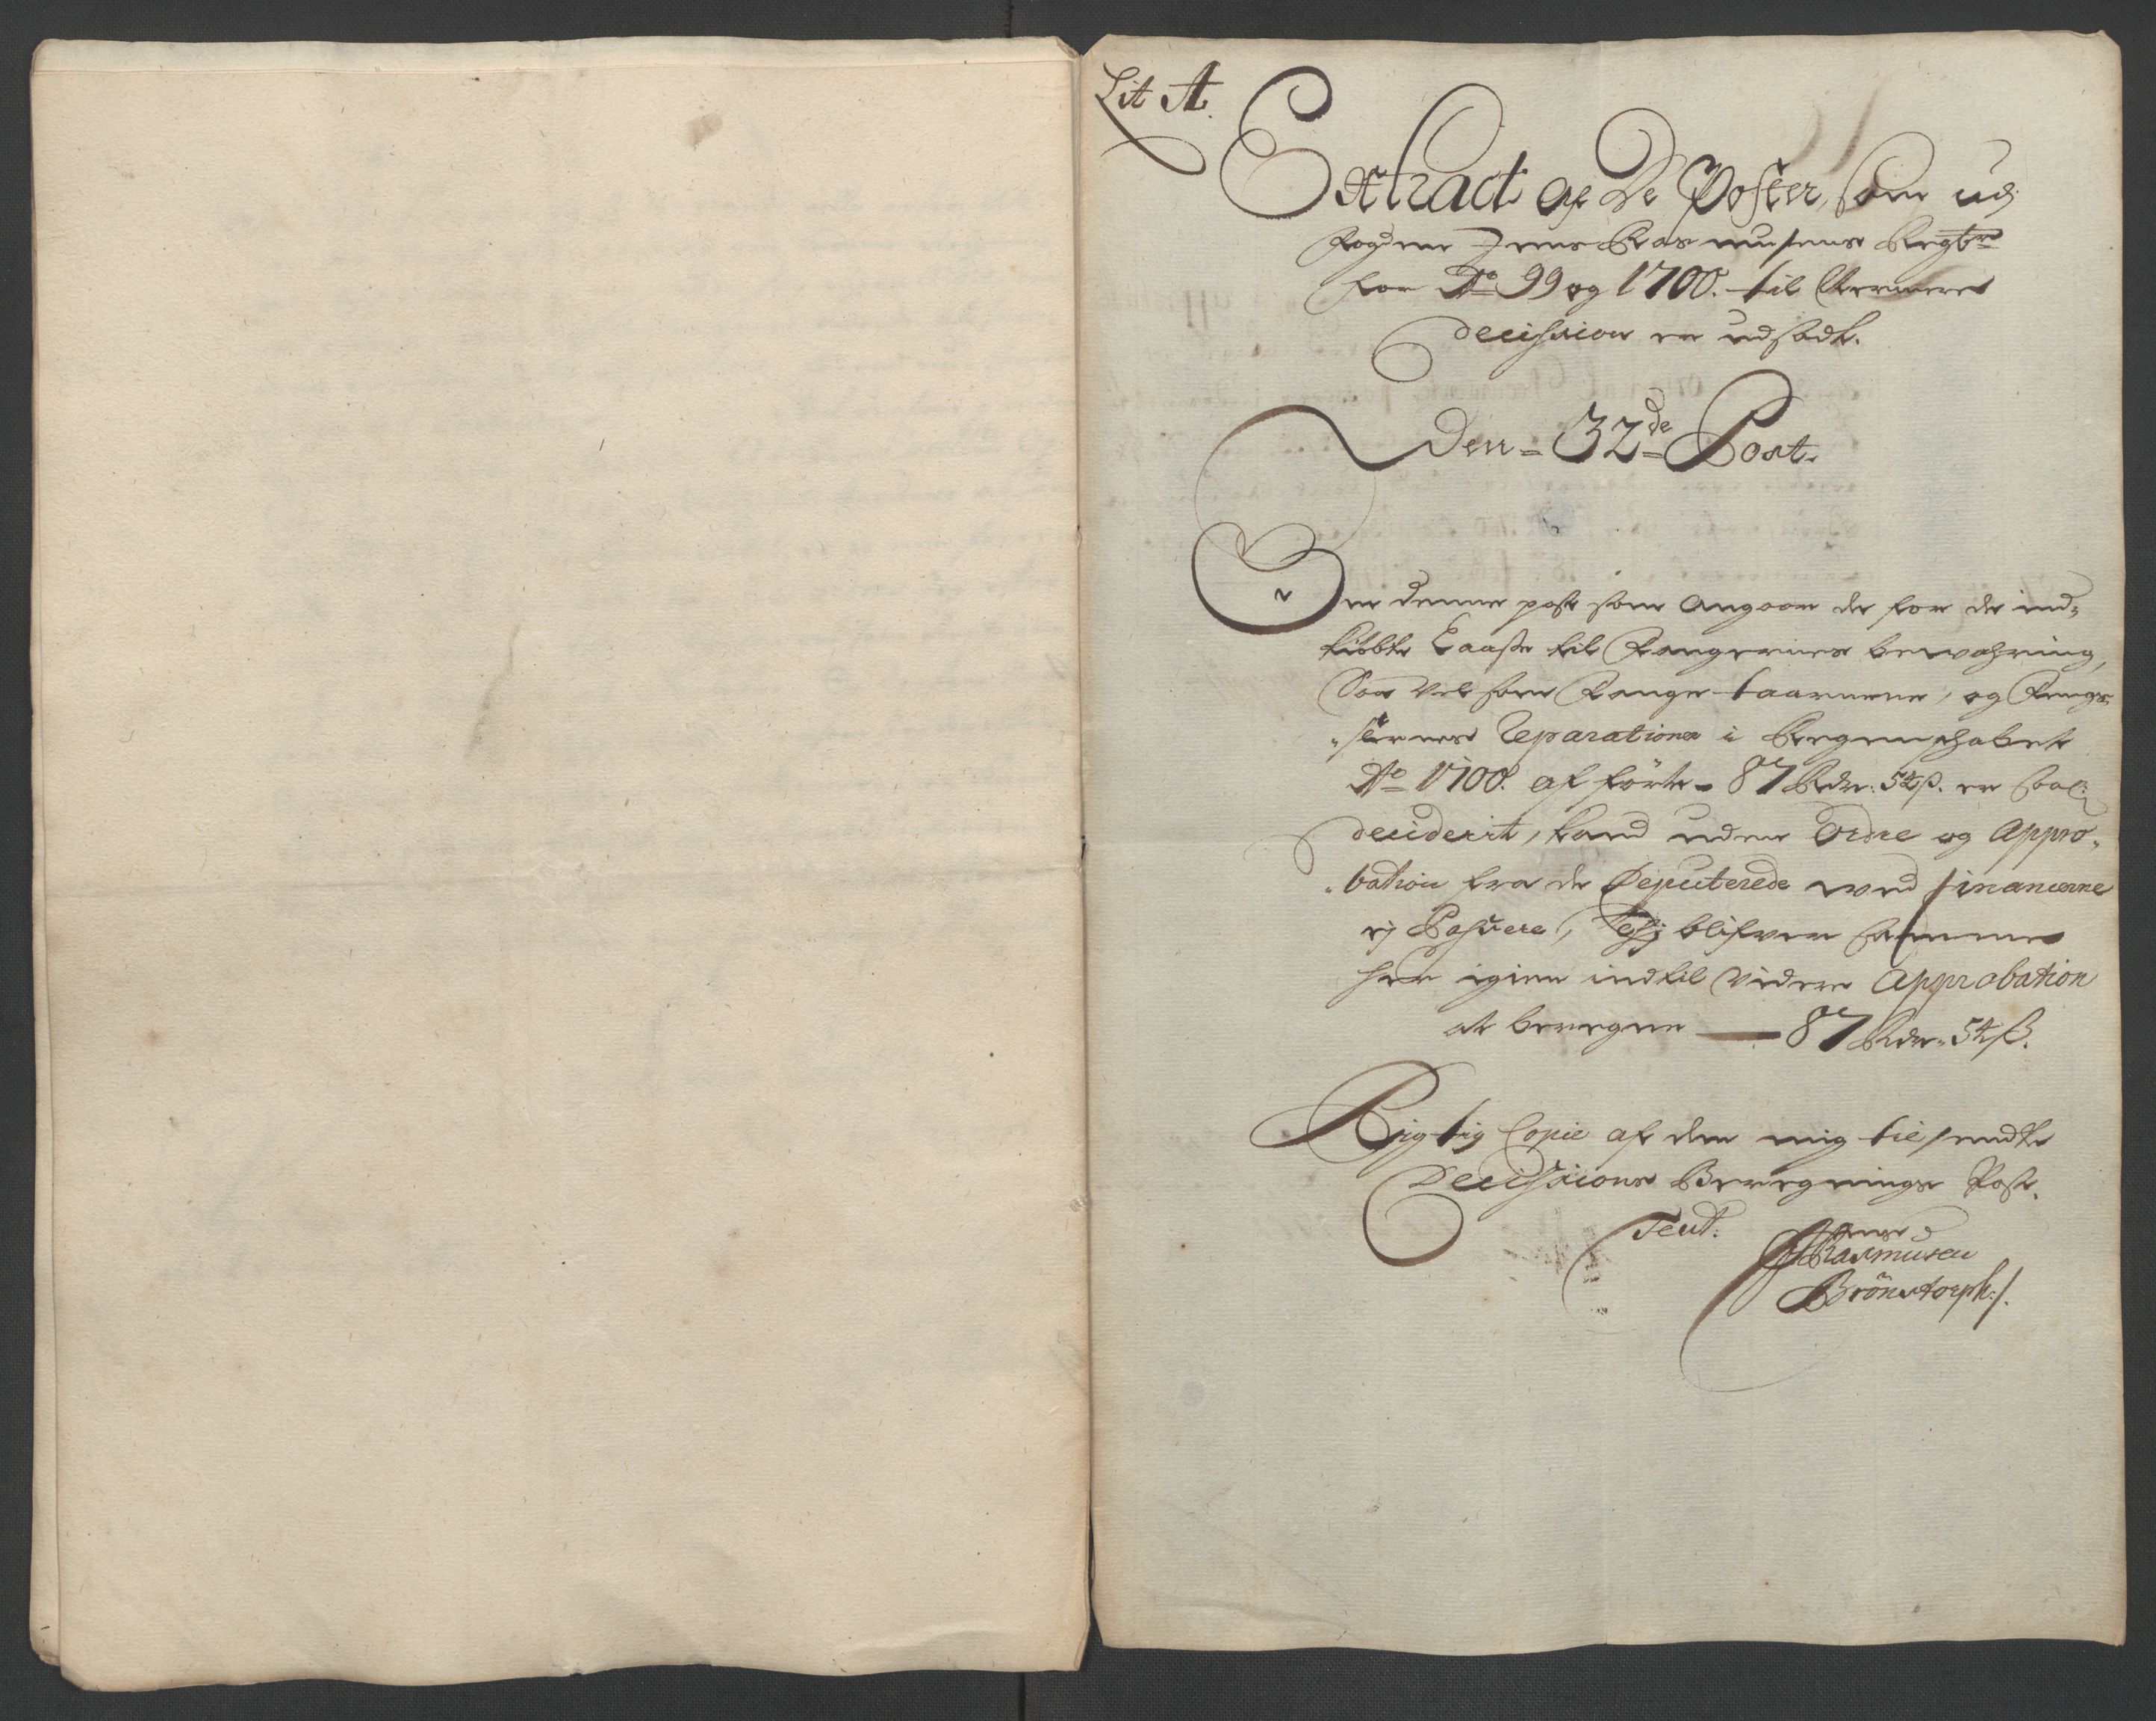 Lit A.
Extract af De Poster, som udj
fogden Jens Rasmusens Regbr
for Ao 99 og 1700. til Nermere
decission er udsadt.
Den 32de Post.
Er denne post som Angaar de for de ind-
kiöbte Laaße til Fangernes bewahring,
Saa vel som Fange taarnene, og Fengs-
-lernes Reparation i Regenschabet
Ao 1700. af förte - 87 Rdr: 54 ß. er saal:
deciderit, kand uden Ordre og Appro-
-bation fra de Deputerede ved financerne
ej Passere, Thj blifver samme
her igien indtil videre Approbation
at beregne — 87 Rdr. 54 ß.
Rigtig Copie af den mig til sendte
Decissions Beregnings Post.
Test:
Jens
Rasmusen
Brönstorph./.